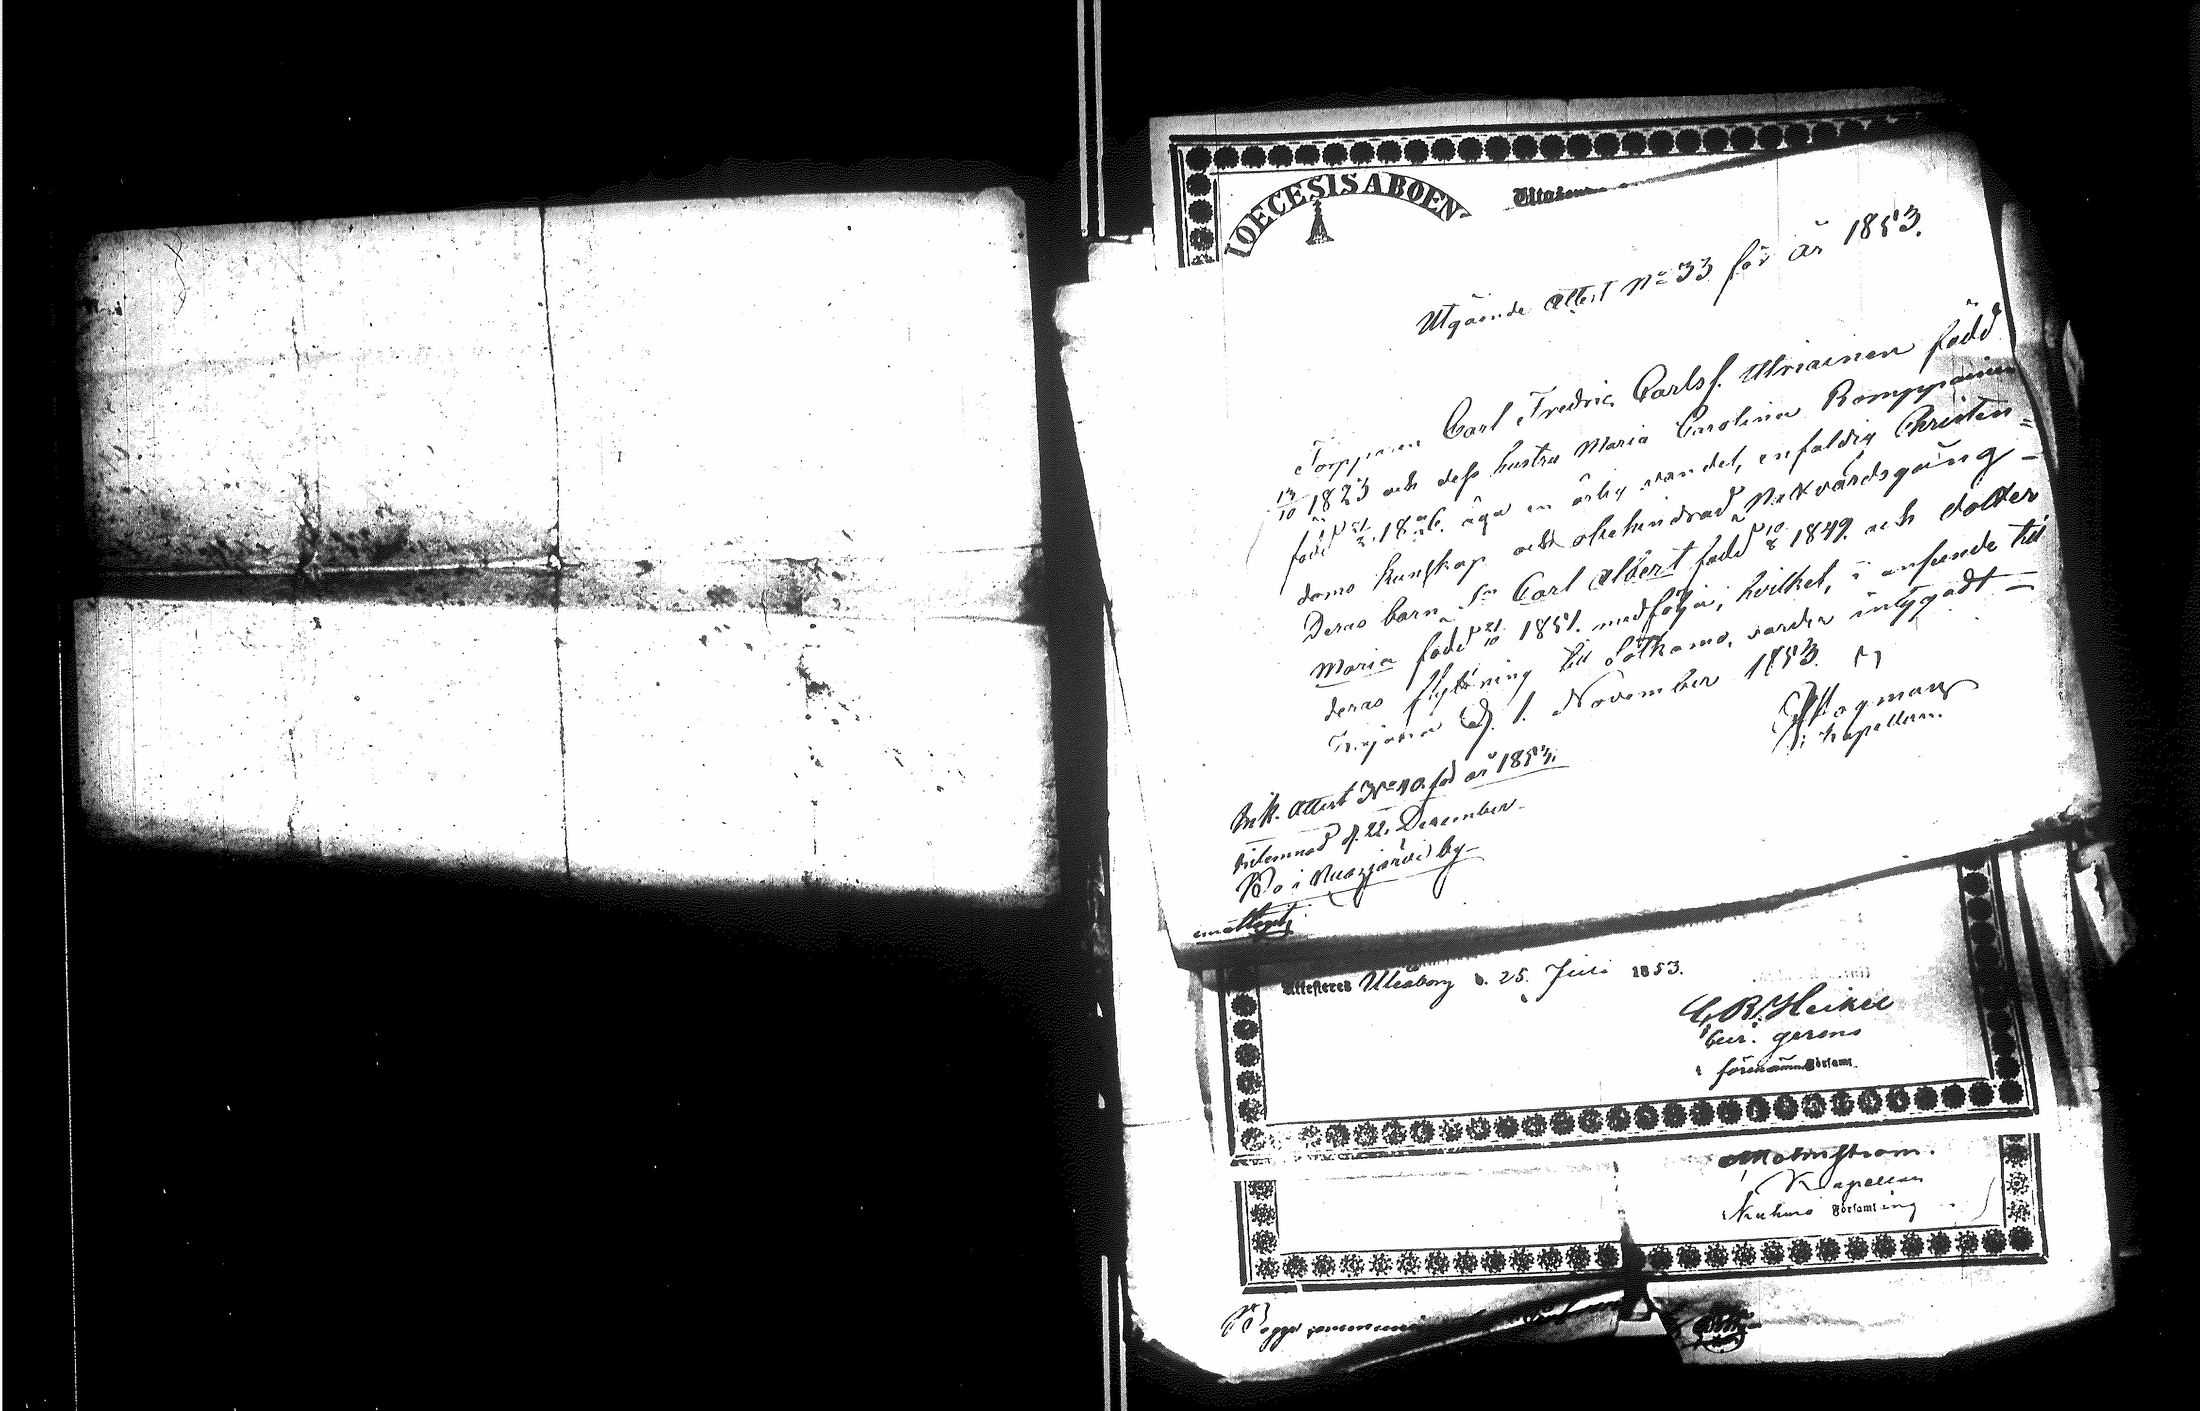 DIOECESIS ABOEN
Utgående Attest No 33 för år 1853.
Torpparen Carl Fredric Carlsf. Alviainen född
13/10 1823 och dess hustru Maria Carolina Romppainen
född 21/2 1826. äga en ärlig vandel, enfaldig Christen=
doms kunskap och obehindrad Nattvardsgång –
Deras barn, Son Carl Albert född 10/8 1849. och dotter
Maria född 21/10 1851. medfölja; hvilket, i anseende till
deras flyttning till Sotkamo, varder intygadt –
d. 1. November 1853.
Hogman
kapellan.
Ink. Attest No 40. för år 1853.
inlemnad d. 22. December.
Bo i by
emottagit
Attesteras Uleåborg d. 25. Juli 1853.
C. R. Heikel
Cur. gerens
i förenämnde Församl.
Malmström.
Kapellan
i Kuhmo Församling